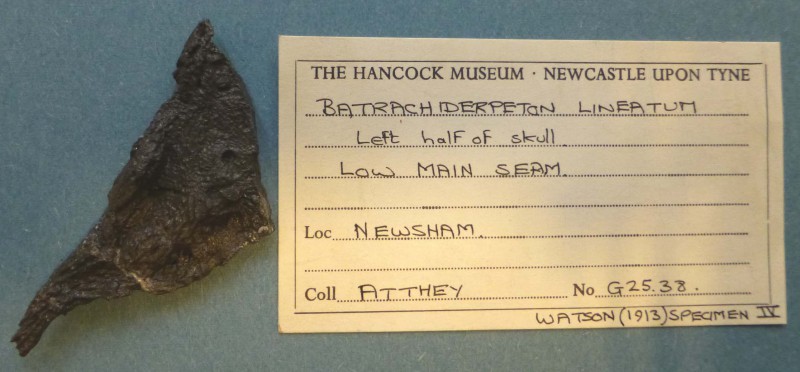 THE HANCOCK MUSEUM · NEWCASTLE UPON TYNE
BATRACHIDERPETON LINEATUM
Left half of skull
LOW MAIN SEAM.
Loc NEWSHAM.
Coll ATTHEY No G25.38.
WATSON (1913) SPECIMEN IV